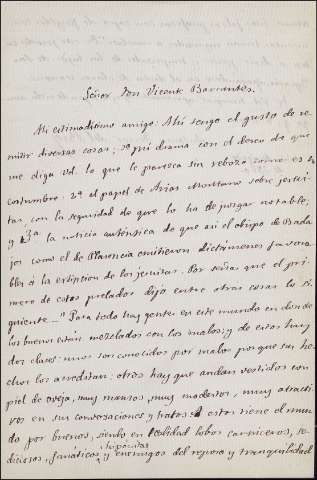 Señor Don Vicente Barrantes.
Mi estimadísimo amigo: Ahí tengo el gusto de re-
mitir diversas cosas; 1º mi drama con el deseo de que
me diga vd. lo que le parezca sin rebozo como es
costumbre: 2º el papel de Arias Montano sobre jesui-
tas con la seguridad de que lo ha de juzgar notable;
y 3ª la noticia auténtica de que así el obispo de Bada-
joz como el de Plasencia emitieron dictámenes favora-
bles á la estincion de los jesuitas. Por señas que el pri-
mero de estos prelados dijo entre otras cosas lo si-
guiente... "Para todo hay gentes en este mundo en donde
los buenos están mezclados con los malos; y de estos hay
dos clases: unos son conocidos por malos porque sus he-
chos los acreditan; otros hay que andan vestidos con
piel de oveja, muy mansos, muy modestos, muy atracti-
vos en sus conversaciones y tratos á estos tiene el mun-
do por buenos, siendo en realidad lobos carniceros, se-
diciosos, fanáticos, hipócritas y enemigos del reposo y tranquilidad